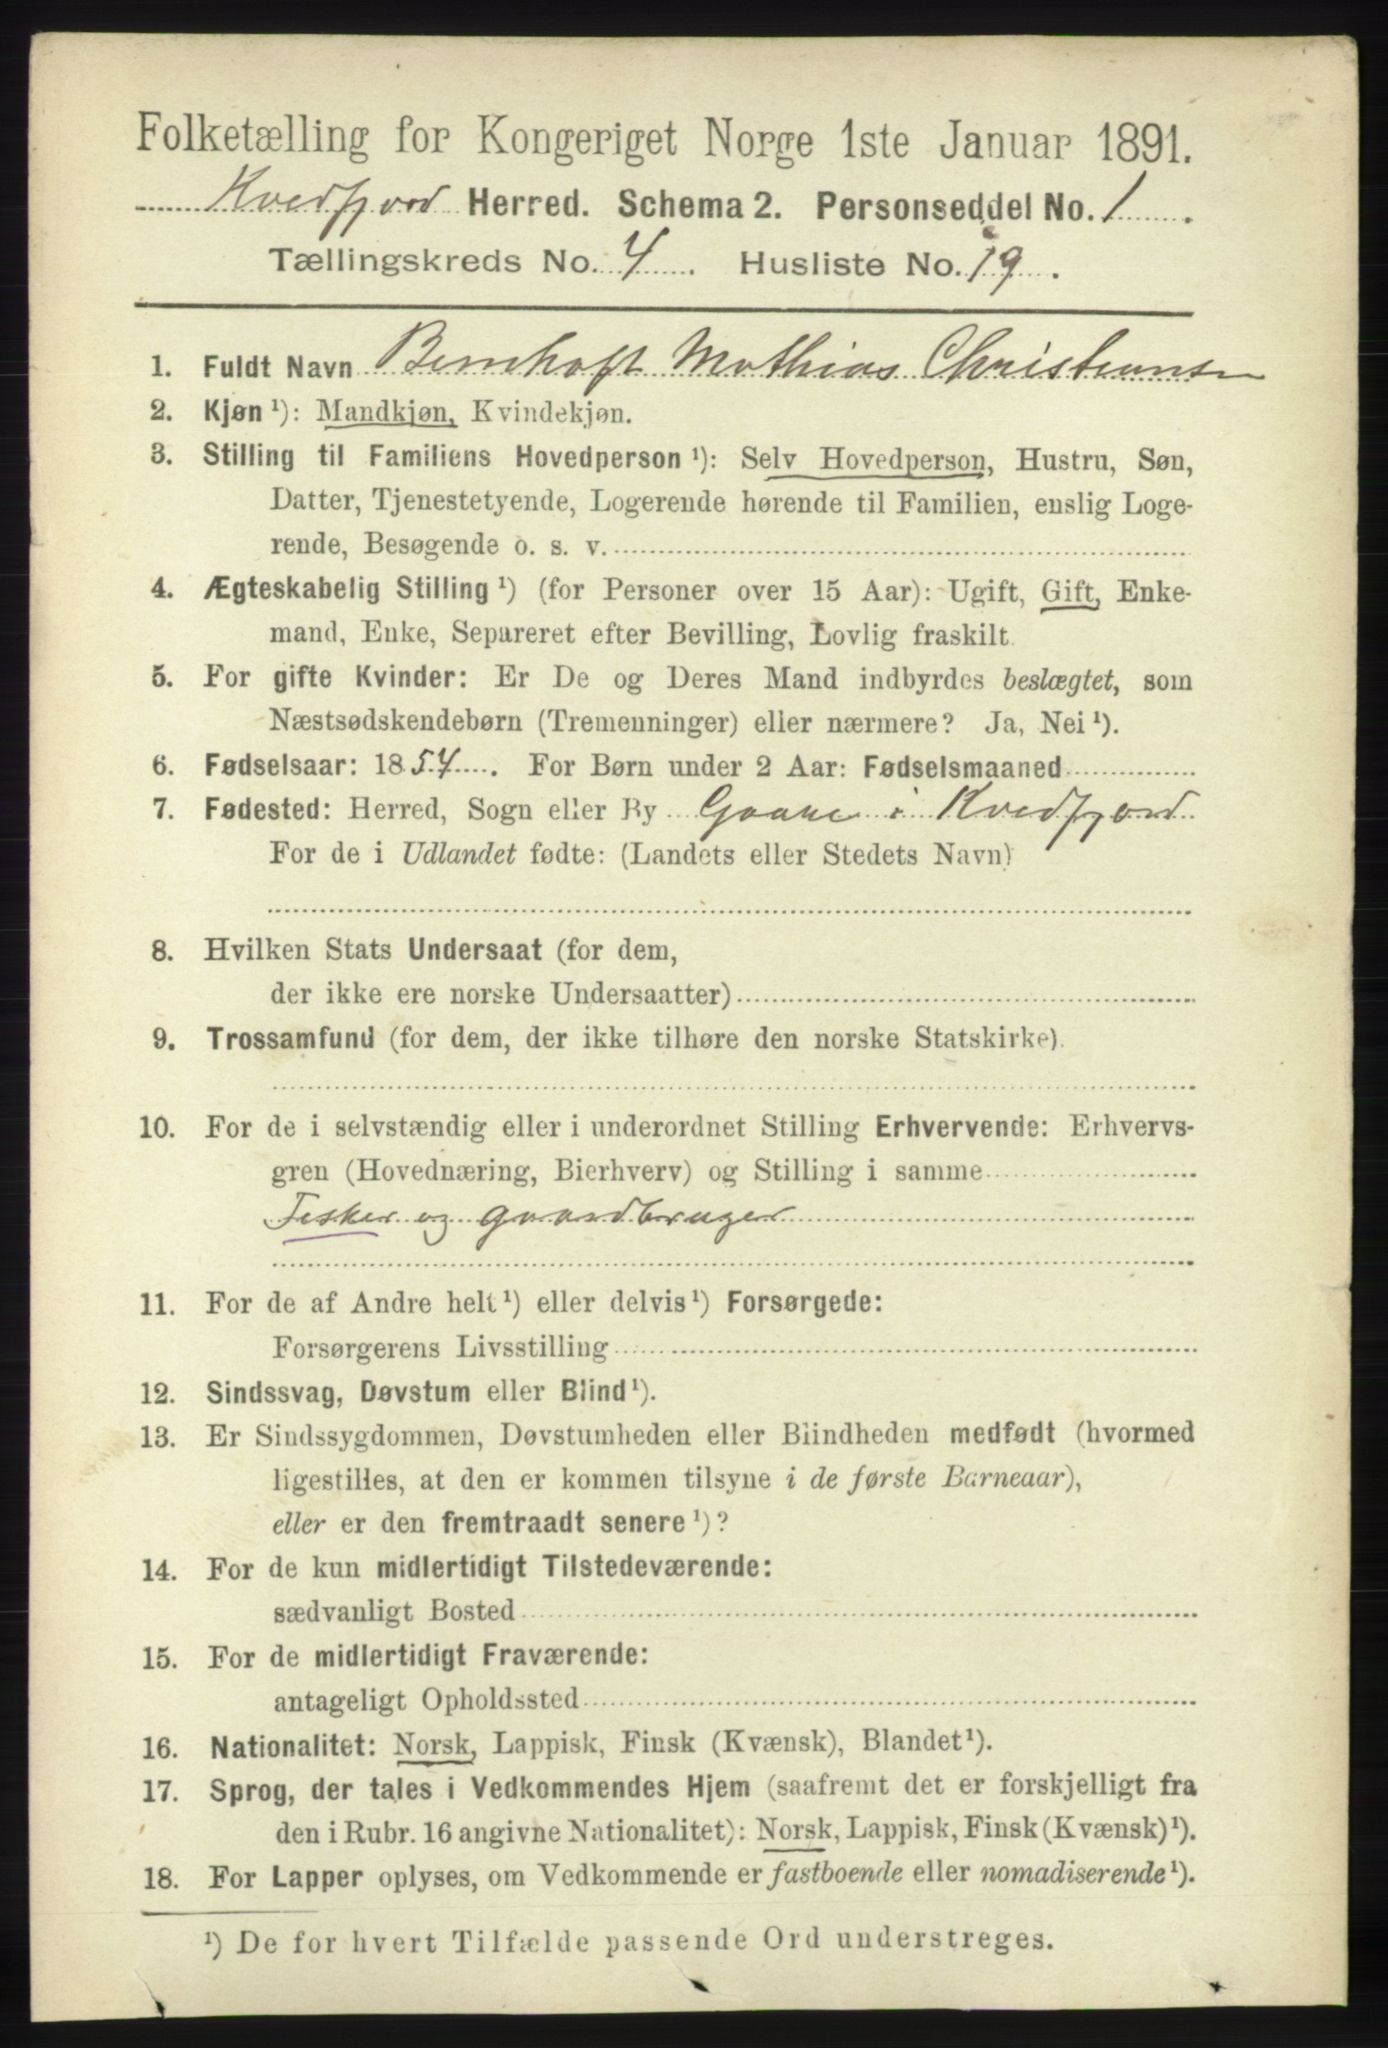 Folketælling for Kongeriget Norge 1ste Januar 1891.
Kvedfjord Herred. Schema 2. Personseddel No. 1.
Tællingskreds No. 4. Husliste No. 19.
1. Fuldt Navn Bernhoft Mathias Christiansen
2. Kjøn ¹): Mandkjøn, Kvindekjøn.
3. Stilling til Familiens Hovedperson ¹): Selv Hovedperson, Hustru, Søn,
Datter, Tjenestetyende, Logerende hørende til Familien, enslig Loge-
rende, Besøgende o. s. v.
4. Ægteskabelig Stilling ¹) (for Personer over 15 Aar): Ugift, Gift, Enke-
mand, Enke, Separeret efter Bevilling, Lovlig fraskilt.
5. For gifte Kvinder: Er De og Deres Mand indbyrdes beslægtet, som
Næstsødskendebørn (Tremenninger) eller nærmere? Ja, Nei ¹).
6. Fødselsaar: 1857. For Børn under 2 Aar: Fødselsmaaned
7. Fødested: Herred, Sogn eller By Gaare i Kvedfjord
For de i Udlandet fødte: (Landets eller Stedets Navn)
8. Hvilken Stats Undersaat (for dem,
der ikke ere norske Undersaatter)
9. Trossamfund (for dem, der ikke tilhøre den norske Statskirke).
10. For de i selvstændig eller i underordnet Stilling Erhvervende: Erhvervs-
gren (Hovednæring, Bierhverv) og Stilling i samme
Fisker og gaardbruger
11. For de af Andre helt ¹) eller delvis ¹) Forsørgede:
Forsørgerens Livsstilling
12. Sindssvag, Døvstum eller Blind ¹).
13. Er Sindssygdommen, Døvstumheden eller Blindheden medfødt (hvormed
ligestilles, at den er kommen tilsyne i de første Barneaar),
eller er den fremtraadt senere ¹)?
14. For de kun midlertidigt Tilstedeværende:
sædvanligt Bosted
15. For de midlertidigt Fraværende:
antageligt Opholdssted
16. Nationalitet: Norsk, Lappisk, Finsk (Kvænsk), Blandet ¹).
17. Sprog, der tales i Vedkommendes Hjem (saafremt det er forskjelligt fra
den i Rubr. 16 angivne Nationalitet): Norsk, Lappisk, Finsk (Kvænsk) ¹).
18. For Lapper oplyses, om Vedkommende er fastboende eller nomadiserende ¹).
¹) De for hvert Tilfælde passende Ord understreges.